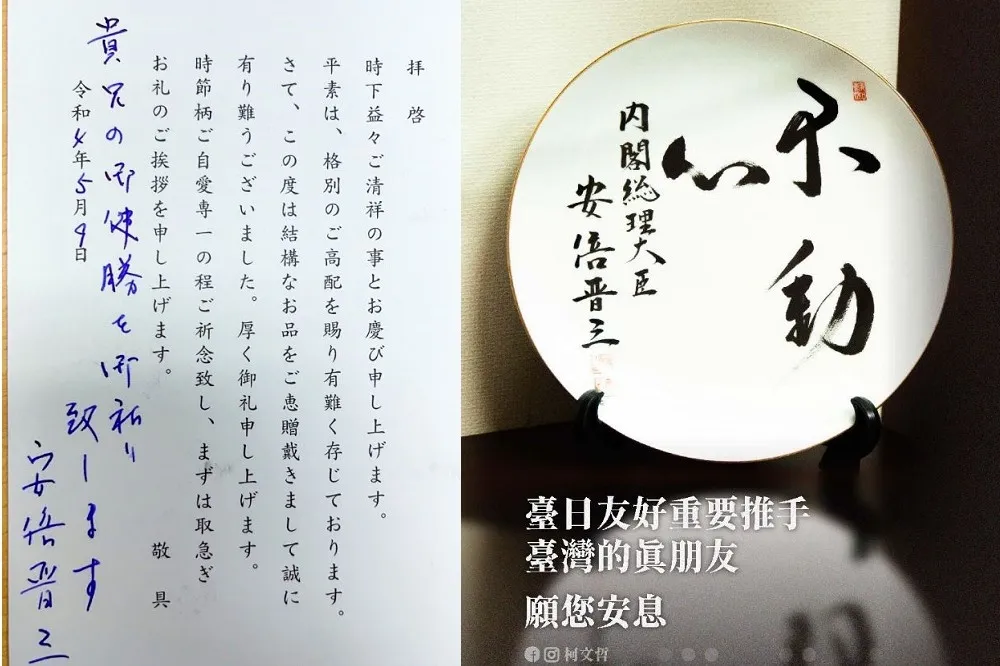 拝啓
時下益々ご清祥の事とお慶び申し上げます。
平素は、格別のご高配を賜り有難く存じております。
さて、この度は結構なお品をご恵贈戴きまして誠に
有り難うございました。厚く御礼申し上げます。
時節柄ご自愛専一の程ご祈念致し、まずは取急ぎ
お礼のご挨拶を申し上げます。
敬具
令和4年5月9日
貴兄の御健勝を御祈り
致します
安倍晋三
不動
心
内閣総理大臣
安倍晋三
臺日友好重要推手
臺灣的真朋友
願您安息
柯文哲